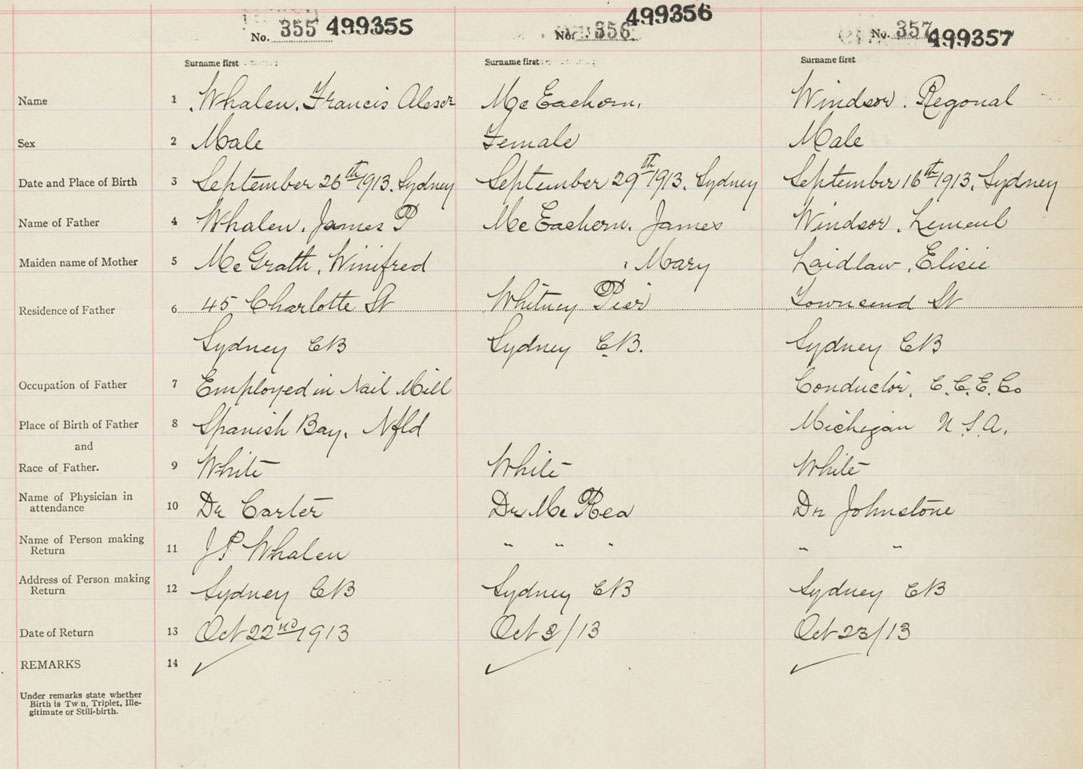 No. 355 499355
No. 356 499356
No. 357 499357
Surname first Surname first Surname first
Name 1 Whalen, Francis Mc Eachern, Windsor, Regonal
Sex 2 Male Female Male
Date and Place of Birth 3 September 26th 1913, Sydney September 29th 1913, Sydney September 16th 1913, Sydney
Name of Father 4 Whalen, James P Mc Eachern, James Windsor, Lemeul
Maiden name of Mother 5 Mc Grath, Winifred , Mary Laidlaw, Elisie
Residence of Father 6 45 Charlotte St Whitney Pier Townsend St
Sydney CB Sydney C.B. Sydney CB
Occupation of Father 7 Employed in Nail Mill Conductor, C.C.E.Co
Place of Birth of Father 8 Spanish Bay, Nfld Michigan U.S.A.
and
Race of Father. 9 White White White
Name of Physician in attendance 10 Dr Carter Dr Mc Rea Dr Johnstone
Name of Person making Return 11 J P Whalen " " " " "
Address of Person making Return 12 Sydney CB Sydney CB Sydney CB
Date of Return 13 Oct 22nd 1913 Oct 3/13 Oct 23/13
REMARKS 14
Under remarks state whether
Birth is Tw n, Triplet, Ille-
gitimate or Still-birth.